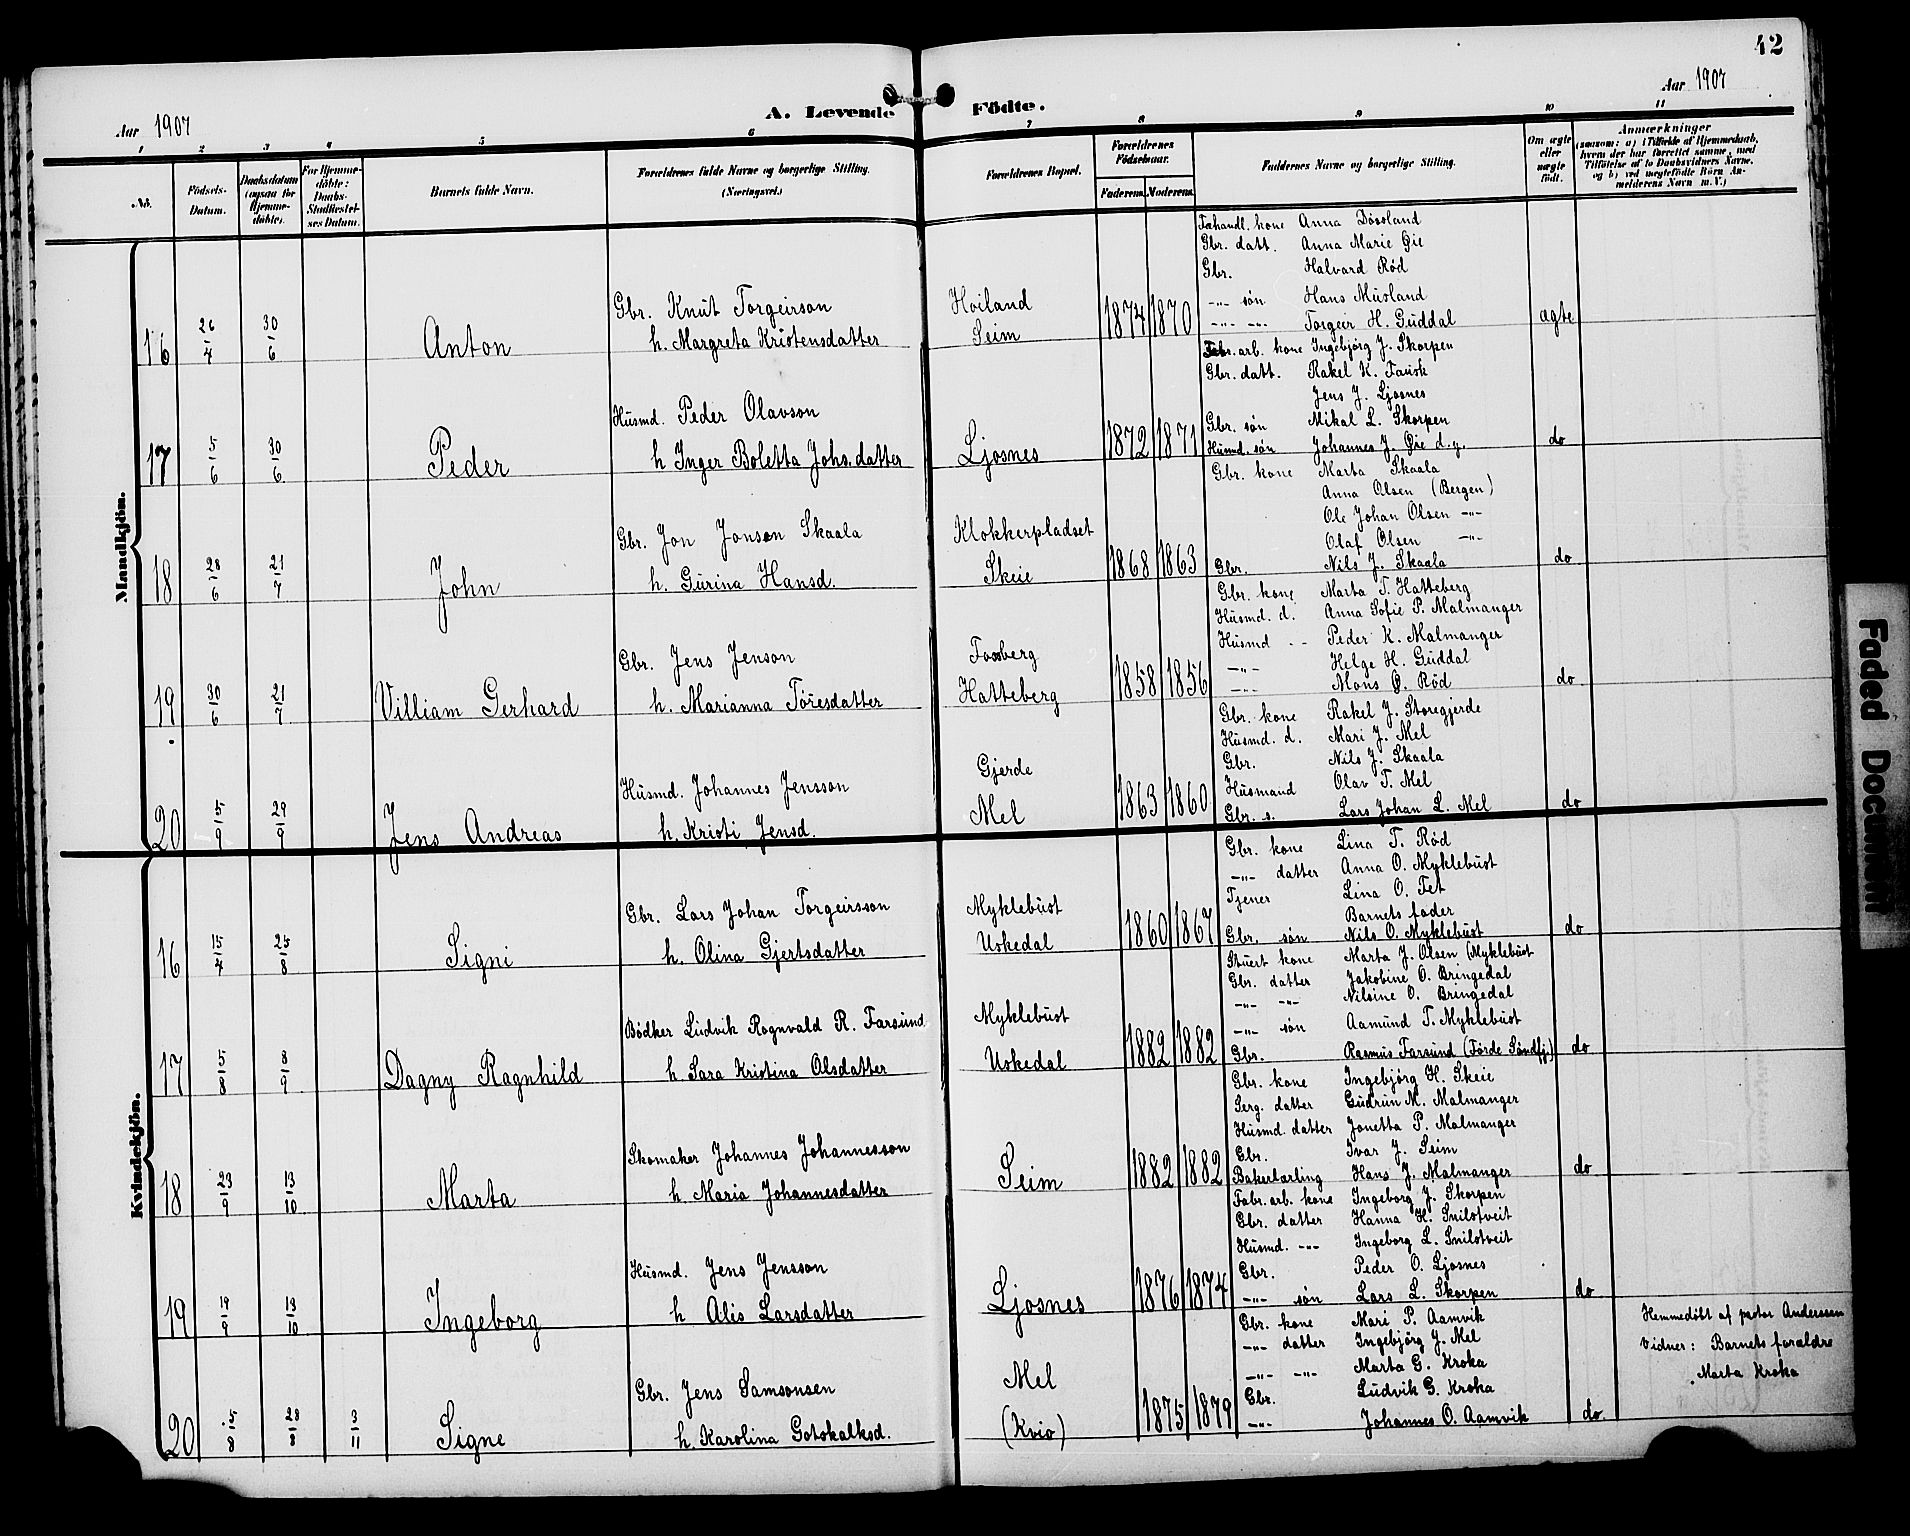 42
Aar 1907
Aar 1907
A. Levende Födte.
1 2 3 4 5 6 7 8 9 10 11
No.
Födsels-Datum.
Daabsdatum (ogsaa for Hjemme-döbte).
For Hjemme-döbte: Daabs-Stadfæstel-ses Datum.
Barnets fulde Navn.
Forældrenes fulde Navne og borgerlige Stilling. (Næringsvei.)
Forældrenes Bopæl.
Forældrenes Födselsaar.
Faderens. Moderens.
Faddernes Navne og borgerlige Stilling.
Om ægte eller uægte födt.
Anmærkninger
(saasom: a) i Tilfælde af Hjemmedaab, hvem der har forrettet samme, med Tilföielse af to Daabsvidners Navne, og b) ved uægtefödte Börn An-melderens Navn m. V.)
Mandkjön.
16 26/4 30/6 Anton
Gbr. Knut Torgeirson
h. Margreta Kristensdatter
Hoiland
Seim
1874 1870
Anna Døssland
Gbr. datt. Anna Marie Øie
Gbr. Halvard Röd
-"- søn Hans Musland
-"- -"- Torgeir H. Guddal
ægte
17 5/6 30/6 Peder
Husmd. Peder Olavson
h Inger Boletta Johs.datter
Ljosnes
1872 1871
Fabr. arb. kone Ingebjørg J. Skorpen
Gbr. datt. Rakel K. Fausk
Jens J. Ljosnes
Gbr. søn Mikal L. Skorpen
Husmd. søn Johannes J. Øie d.y.
do
18 28/6 21/7 John
Gbr. Jon Jonson Skaala
h. Gurina Hansd.
Klokkerpladset
Skeie
1868 1863
Gbr. kone Marta Skaala
Anna Olsen (Bergen)
Ole Johan Olsen -"-
Olaf Olsen -"-
Gbr. Nils J. Skaala
do
19 30/6 21/7 Villiam Gerhard
Gbr. Jens Jenson
h. Marianna Töresdatter
Fossberg
Hatteberg
1858 1856
Gbr. kone Marta T. Hatteberg
Husmd. d. Anna Sofie P. Malmanger
Husmd -- Peder K. Malmanger
-"- Helge H. Guddal
-"- Mons O. Röd
do
20 5/9 29/9 Jens Andreas
Husmd. Johannes Jensson
h. Kristi Jensd.
Gjerde
Mel
1863 1860
Gbr. kone Rakel J. Storegjerde
Husmd. d. Mari J. Mel
Gbr. Nils J. Skaala
Husmand Olav T. Mel
Gbr. s. Lars Johan L. Mel
do
Kvindekjön.
16 15/4 25/8 Signi
Gbr. Lars Johan Torgeirsson
h. Olina Gjertsdatter
Myklebust
Uskedal
1860 1867
Gbr. kone Lina T. Röd
-"- datter Anna O. Myklebust
Tjener Lina O. Fet
Barnets fader
Gbr. søn Nils O. Myklebust
do
17 5/8 8/9 Dagny Ragnhild
Bödker Ludvik Rognvald R. Farsund
h. Sara Kristina Olsdatter
Myklebust
Uskedal
1882 1882
Stuert kone Marta J. Olsen (Myklebust
Gbr. datter Jakobine O. Bringedal
-"- -"- Nilsine O. Bringedal
-"- søn Aamund T. Myklebust
Gbr. Rasmus Farsund (Förde Söndfj.)
do
18 23/9 13/10 Marta
Skomaker Johannes Johannesson
h. Maria Johannesdatter
Seim
1882 1882
Gbr. kone Ingebjörg H. Skeie
Serg. datter Gudrun M. Malmanger
Husmd. datter Jonetta P. Malmanger
Gbr. Ivar J. Seim
Bakerlærling Hans J. Malmanger
do
19 19/9 13/10 Ingeborg
Husmd. Jens Jensson
h Alis Larsdatter
Ljosnes
1876 1874
Fabr. arb. kone Ingeborg J. Skorpen
Gbr. datter Hanna H. Snilstveit
Husmd. -"- Ingeborg L. Snilstveit
Gbr. Peder O. Ljosnes
-"- søn Lars L. Skorpen
do
20 5/8 28/8 3/11 Signe
Gbr. Jens Samsonsen
h. Karolina Gotskalksd.
Mel
(Kvio)
1875 1879
Gbr. kone Mari P. Aamvik
-"- datter Ingebjörg J. Mel
-"- -"- Marta G. Kroka
Gbr. Ludvik G. Kroka
-"- Johannes O. Aamvik
do.
Hemmedöbt af pastor Anderssen
Vidner: Barnets forældre
Marta Kroka
Faded Document